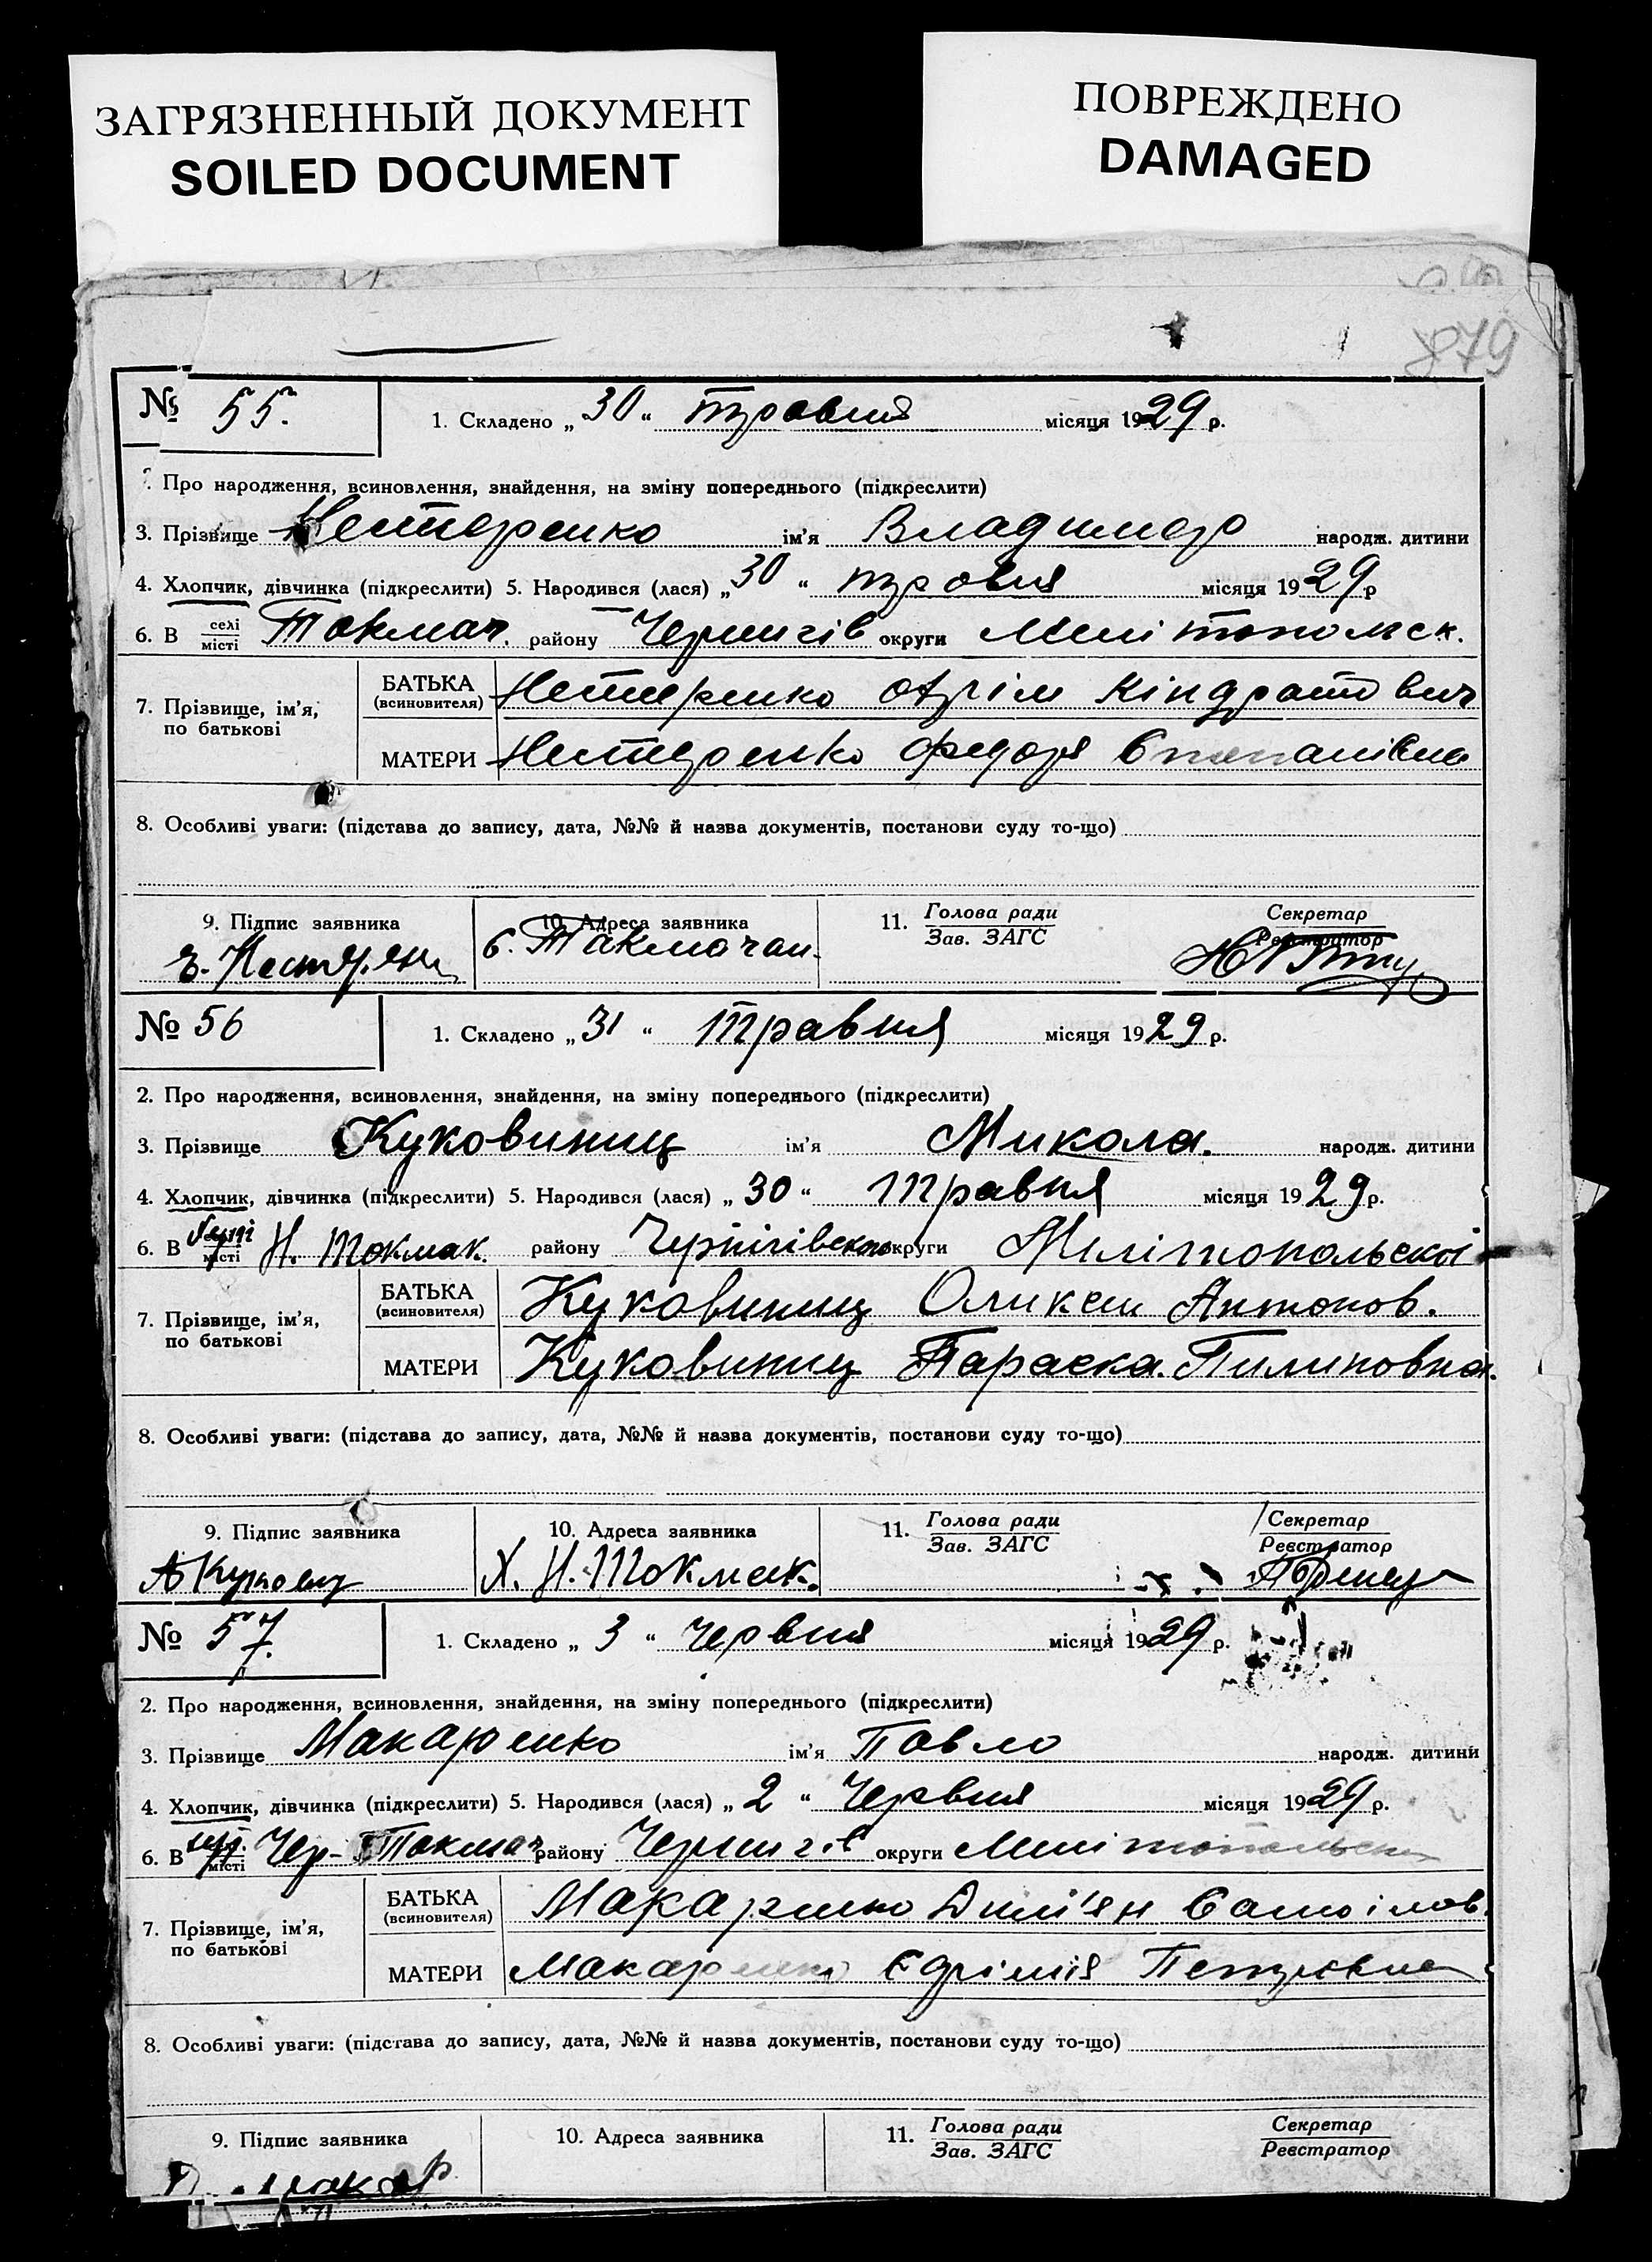 ЗАГРЯЗНЕННЫЙ ДОКУМЕНТ
SOILED DOCUMENT
ПОВРЕЖДЕНО
DAMAGED
879
№ 55. 1. Складено „30“ травня місяця 1929 р.
2. Про народження, всиновлення, знайдення, на зміну попереднього (підкреслити)
3. Прізвище Нестеренко ім'я Владимер народж. дитини
4. Хлопчик, дівчинка (підкреслити) 5. Народився (лася) „30“ травня місяця 1929 р
6. В селі місті Токмач. району Чернигів округи Мелітопольск.
7. Прізвище, ім'я, по батькові
БАТЬКА (всиновителя) Нестеренко Кіндратович
МАТЕРИ Нестеренко Федоря Степанівна
8. Особливі уваги: (підстава до запису, дата, №№ й назва документів, постанови суду то-що)
9. Підпис заявника
10. Адреса заявника
11. Голова ради Зав. ЗАГС
Секретар Реєстратор
с. Токмачан.
№ 56 1. Складено „31“ травня місяця 1929 р.
2. Про народження, всиновлення, знайдення, на зміну попереднього (підкреслити)
3. Прізвище Куковиниц ім'я Микола. народж. дитини
4. Хлопчик, дівчинка (підкреслити) 5. Народився (лася) „30“ травня місяця 1929 р.
6. В місті Н. Токмак. району Чернігівського округи Мелітопольскоі
7. Прізвище, ім'я, по батькові
БАТЬКА (всиновителя) Куковиниц Оликси Антонов.
МАТЕРИ Куковиниц Параска. Пилиповна.
8. Особливі уваги: (підстава до запису, дата, №№ й назва документів, постанови суду то-що)
9. Підпис заявника
10. Адреса заявника
11. Голова ради Зав. ЗАГС
Секретар Реєстратор
Х. Н. Токмак.
№ 57. 1. Складено „3“ червня місяця 1929 р.
2. Про народження, всиновлення, знайдення, на зміну попереднього (підкреслити)
3. Прізвище Макаренко ім'я Павло народж. дитини
4. Хлопчик, дівчинка (підкреслити) 5. Народився (лася) „2“ Червня місяця 1929 р.
6. В місті Чер- Токмач району Чернигів округи Мелітопольск
7. Прізвище, ім'я, по батькові
БАТЬКА (всиновителя) Макаренко Дем'ян Самоілов.
МАТЕРИ Макаренко Петровна
8. Особливі уваги: (підстава до запису, дата, №№ й назва документів, постанови суду то-що)
9. Підпис заявника
10. Адреса заявника
11. Голова ради Зав. ЗАГС
Секретар Реєстратор